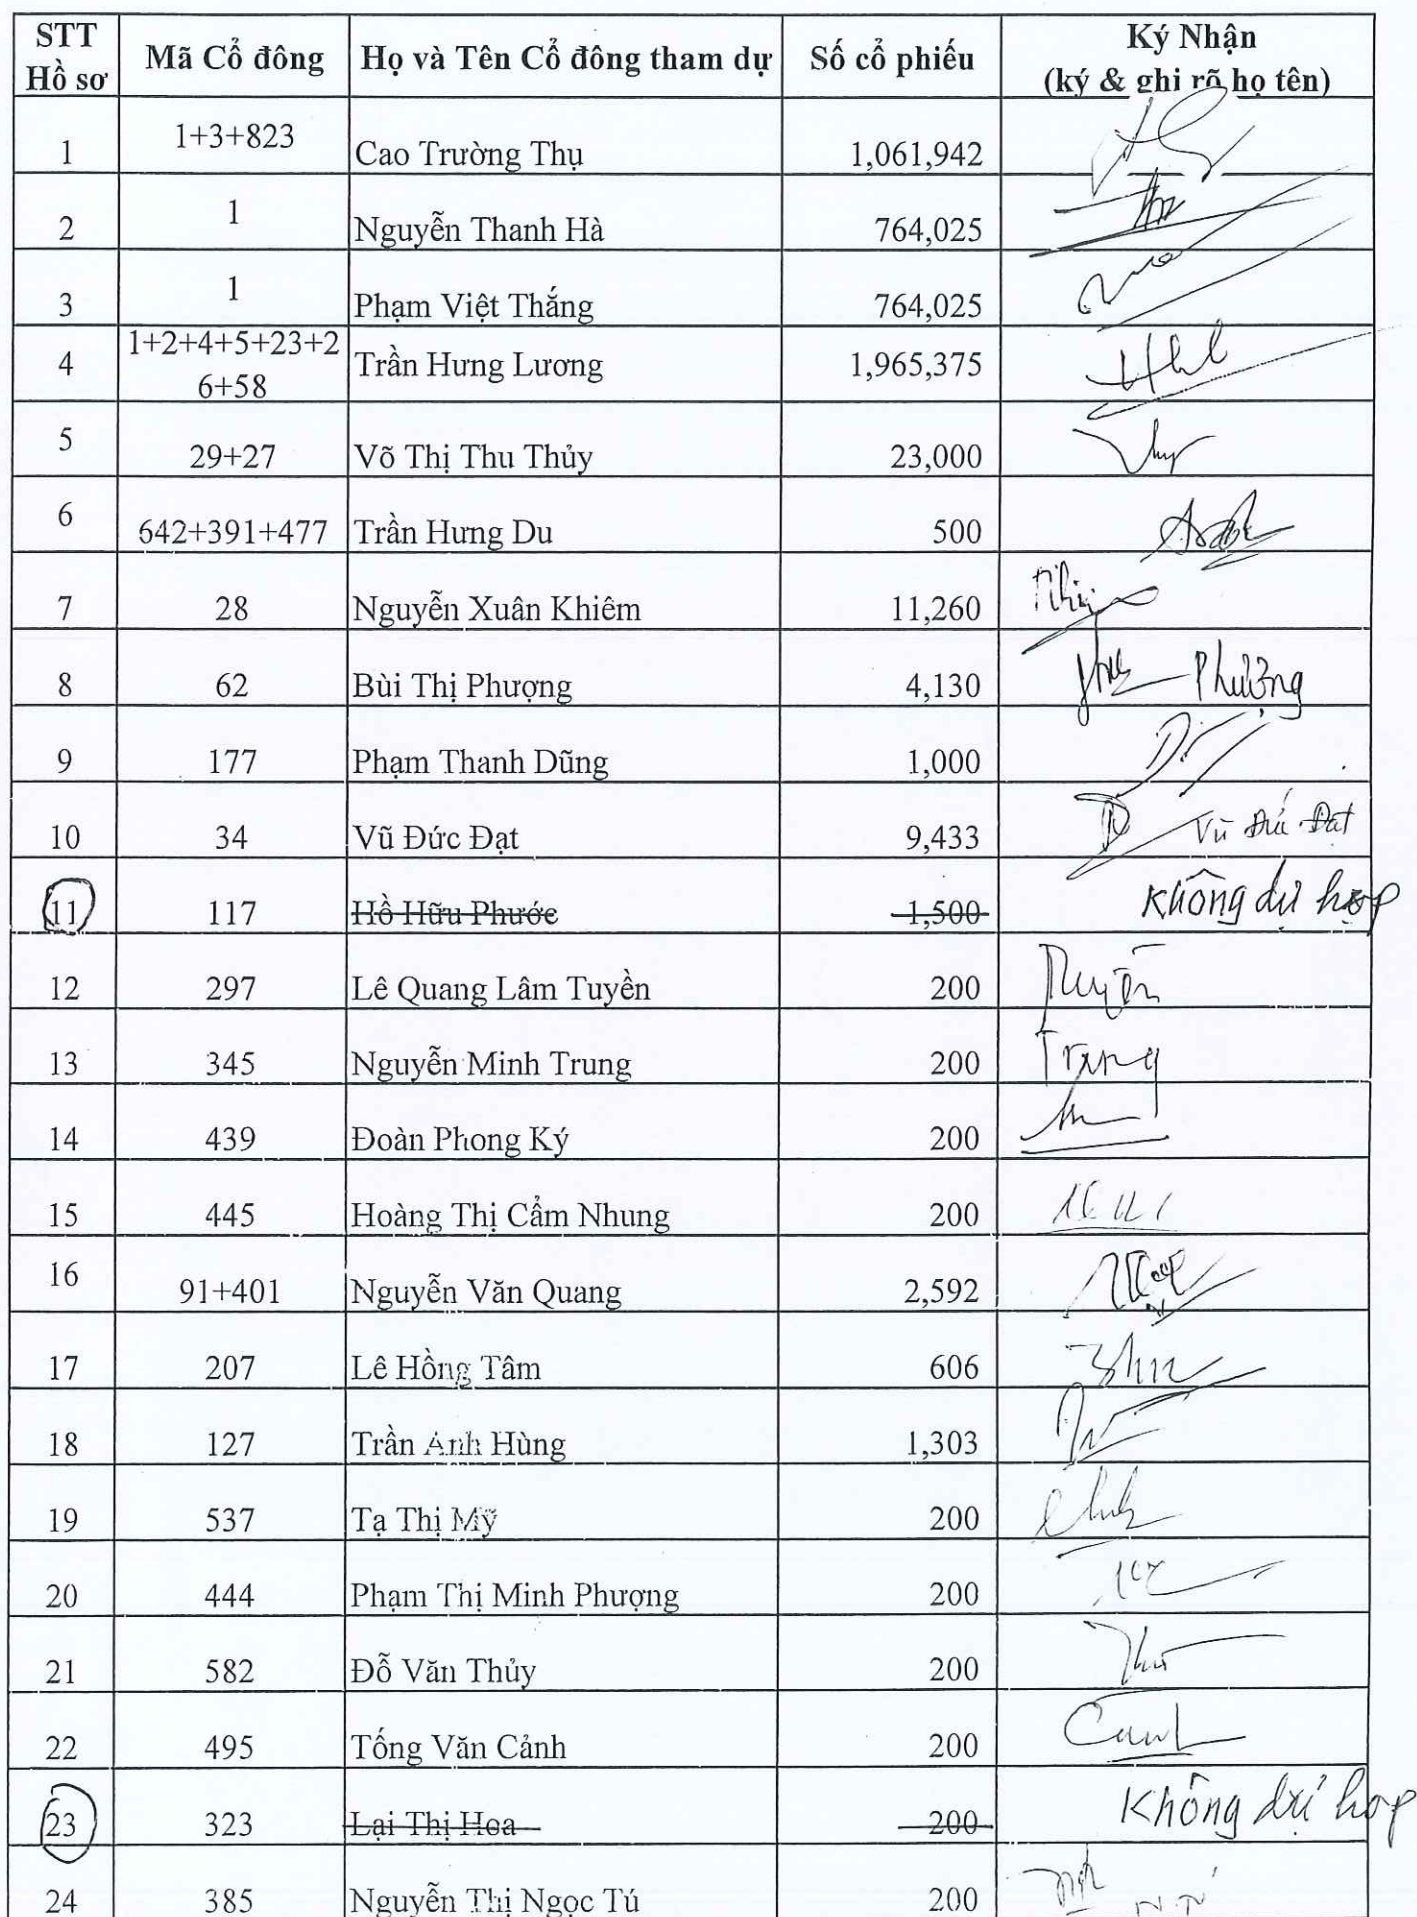 STT Hồ sơ Mã Cổ đông Họ và Tên Cổ đông tham dự Số cổ phiếu Ký Nhận (ký & ghi rõ họ tên)
1 1+3+823 Cao Trường Thụ 1,061,942
2 1 Nguyễn Thanh Hà 764,025
3 1 Phạm Việt Thắng 764,025
4 1+2+4+5+23+26+58 Trần Hưng Lương 1,965,375
5 29+27 Võ Thị Thu Thủy 23,000
6 642+391+477 Trần Hưng Du 500
7 28 Nguyễn Xuân Khiêm 11,260
8 62 Bùi Thị Phượng 4,130 Phượng
9 177 Phạm Thanh Dũng 1,000
10 34 Vũ Đức Đạt 9,433 Vũ Đức Đạt
11 117 Hồ Hữu Phước 1,500 Không dự họp
12 297 Lê Quang Lâm Tuyền 200 Tuyền
13 345 Nguyễn Minh Trung 200 Trung
14 439 Đoàn Phong Ký 200
15 445 Hoàng Thị Cẩm Nhung 200
16 91+401 Nguyễn Văn Quang 2,592
17 207 Lê Hồng Tâm 606
18 127 Trần Anh Hùng 1,303
19 537 Tạ Thị Mỹ 200
20 444 Phạm Thị Minh Phượng 200
21 582 Đỗ Văn Thủy 200
22 495 Tống Văn Cảnh 200
23 323 Lại Thị Hoa 200 Không dự họp
24 385 Nguyễn Thị Ngọc Tú 200